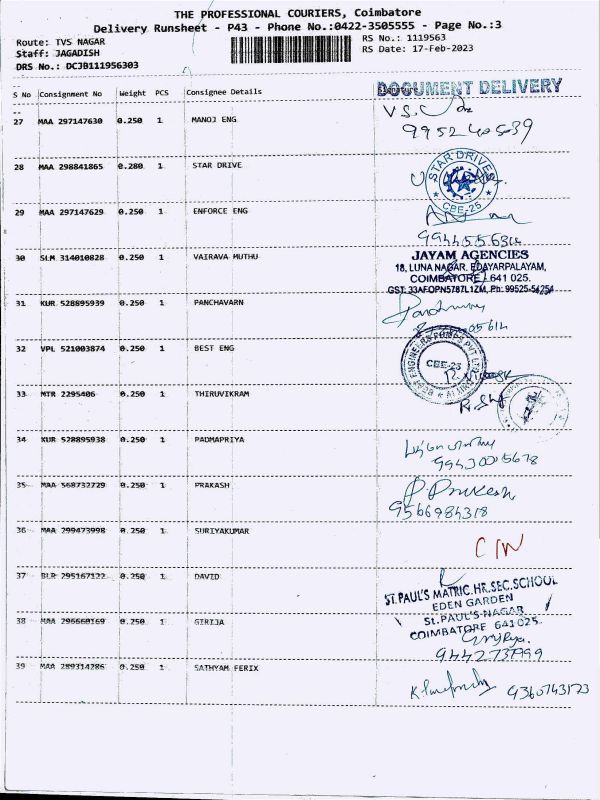 THE PROFESSIONAL COURIERS, Coimbatore
Delivery Runsheet - P43 - Phone No.:0422-3505555 - Page No.:3
Route: TVS NAGAR RS No.: 1119563
Staff: JAGADISH RS Date: 17-Feb-2023
DRS No.: DCJB111956303
DOCUMENT DELIVERY
S No Consignment No Weight PCS Consignee Details Signature
27 MAA 297147630 0.250 1 MANOJ ENG
28 MAA 298841865 0.280 1 STAR DRIVE
STAR DRIVES
CBE-25
29 MAA 297147629 0.250 1 ENFORCE ENG
30 SLM 314010828 0.250 1 VAIRAVA MUTHU
JAYAM AGENCIES
18, LUNA NAGAR, EDAYARPALAYAM,
COIMBATORE - 641 025.
GST: 33AFOPN5787L1ZM, Ph: 99525-54254
31 KUR 528895939 0.250 1 PANCHAVARN
32 VPL 521003874 0.250 1 BEST ENG
CBE-25
33 MTR 2295406 0.250 1 THIRUVIKRAM
34 KUR 528895938 0.250 1 PADMAPRIYA
35 MAA 568732729 0.250 1 PRAKASH
P. Prakash
9566984318
36 MAA 299473998 0.250 1 SURIYAKUMAR
37 BLR 295167122 0.250 1 DAVID
ST.PAUL'S MATRIC.HR.SEC.SCHOOL
EDEN GARDEN
St.PAUL'S NAGAR
COIMBATORE 641 025.
38 MAA 296660169 0.250 1 GIRIJA
9442737999
39 MAA 289314286 0.250 1 SATHYAM FERIX
9360743173